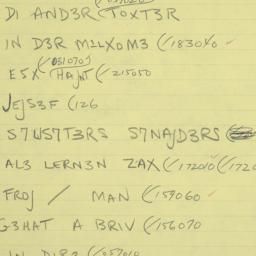 DI AND3R TOXT3R
IN D3R M2LX0M3 (/183040
E5X HAJNT (/215050
JEJS3F (126
S7WS7T3RS S7NAJD3RS
AL3 LERN3N ZAX (/172010 (/172
FROJ / MAN (/159060
G3HAT A BRIV (/156070